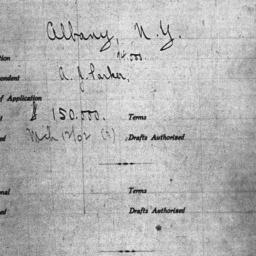 Albany, N.Y.
tion
pondent A. J. Parker,
of Application
$ 150.000. Terms
ed Mch 12/02 (2) Drafts Authorized
nal Terms
ed Drafts Authorized